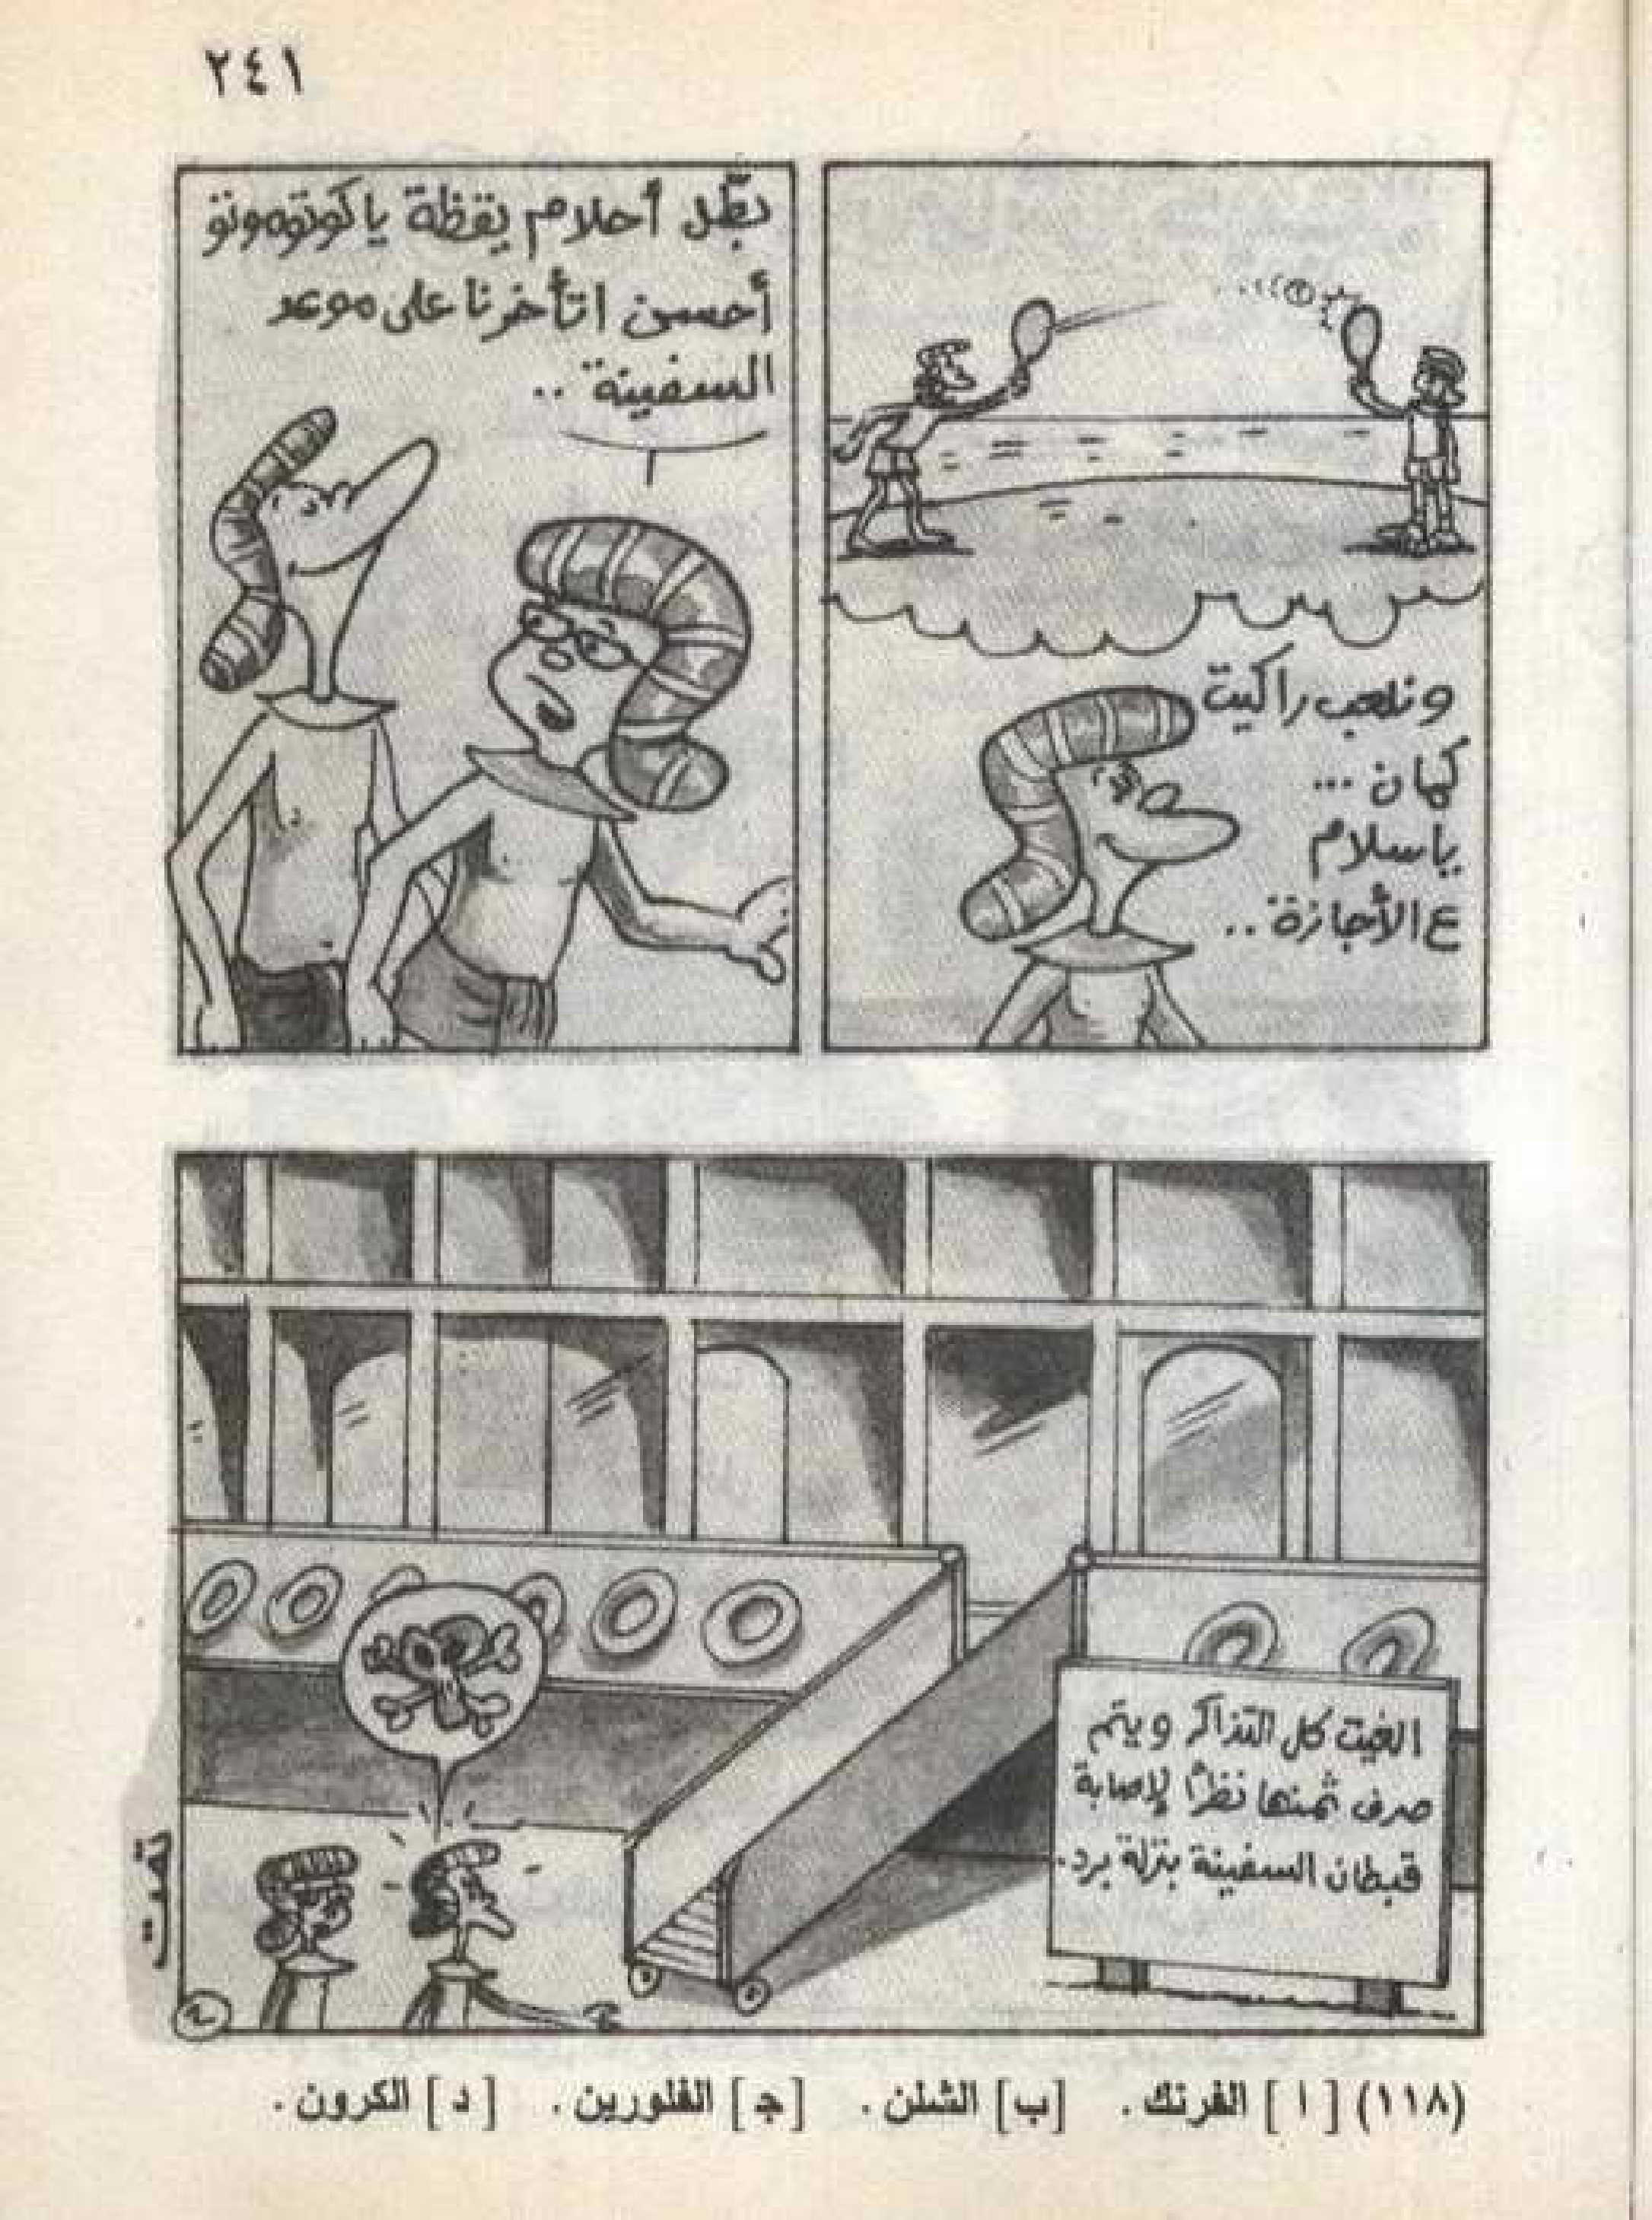 ٢٤١
ونلعب راكيت
كمان ...
ياسلام
ع الأجازة ..
بطّل أحلام يقظة ياكونوهونو
أحسن اتأخرنا على موعد
السفينة ..
الغيت كل التذاكر ويتم
صرف ثمنها نظرًا لإصابة
قبطان السفينة بنزلة برد.
تمت
(١١٨) [ ا ] الفرنك . [ب] الشلن . [ج] الفلورين . [ د ] الكرون .